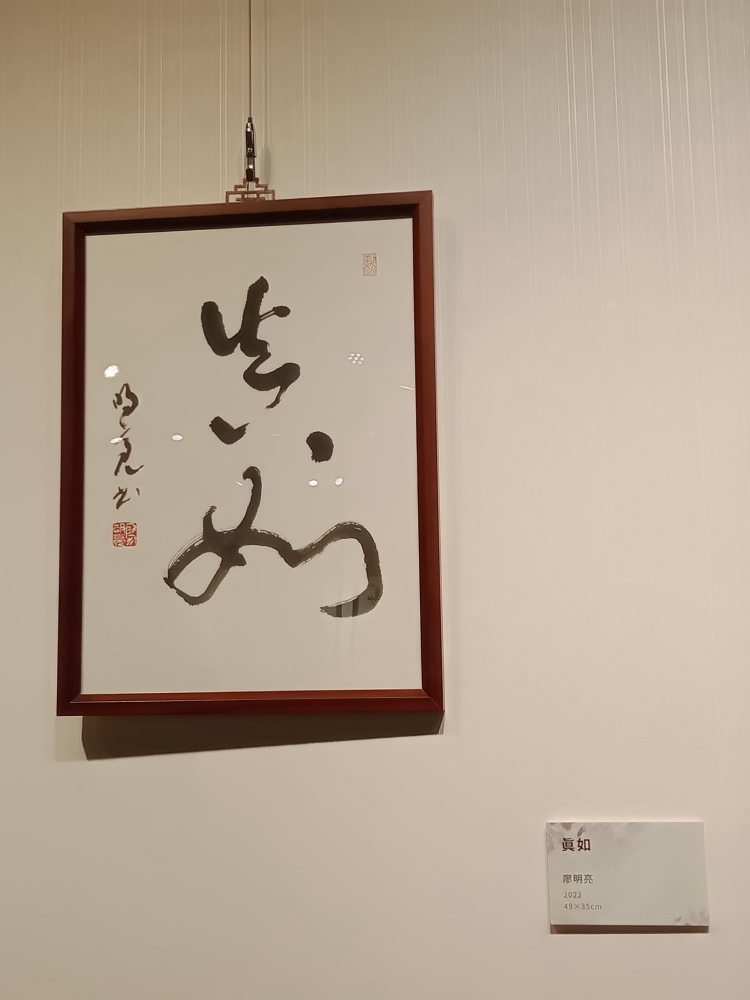 真如
明亮书
眞如
廖明亮
2022
49×35cm